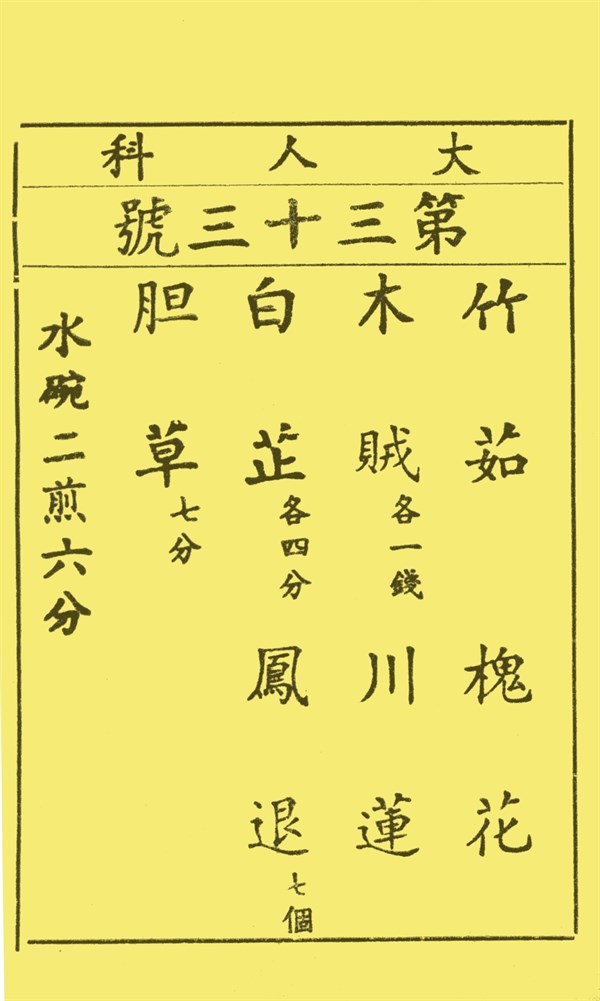 大人科
第三十三號
竹茹 槐花
木賊各一錢 川蓮
白芷各四分 鳳退七個
胆草七分
水碗二煎六分